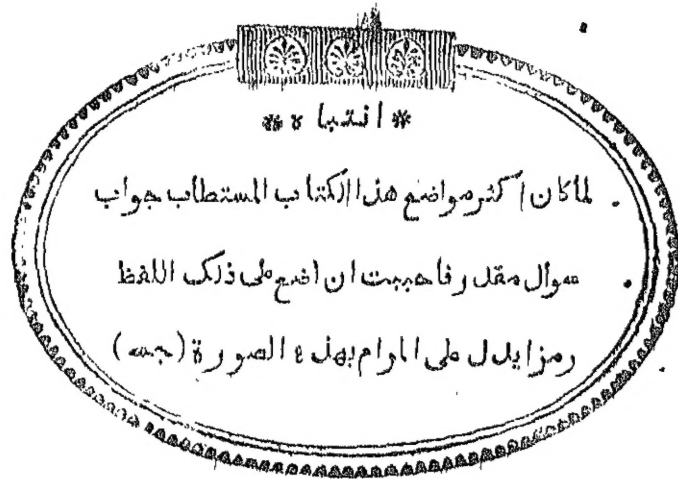 * انتباه *
لما كان اكثر مواضع هذا الكتاب المستطاب جواب
سوال مقدر فاحببت ان اضع على ذلك اللفظ
رمزا يدل على المرام بهذه الصورة (جسه)